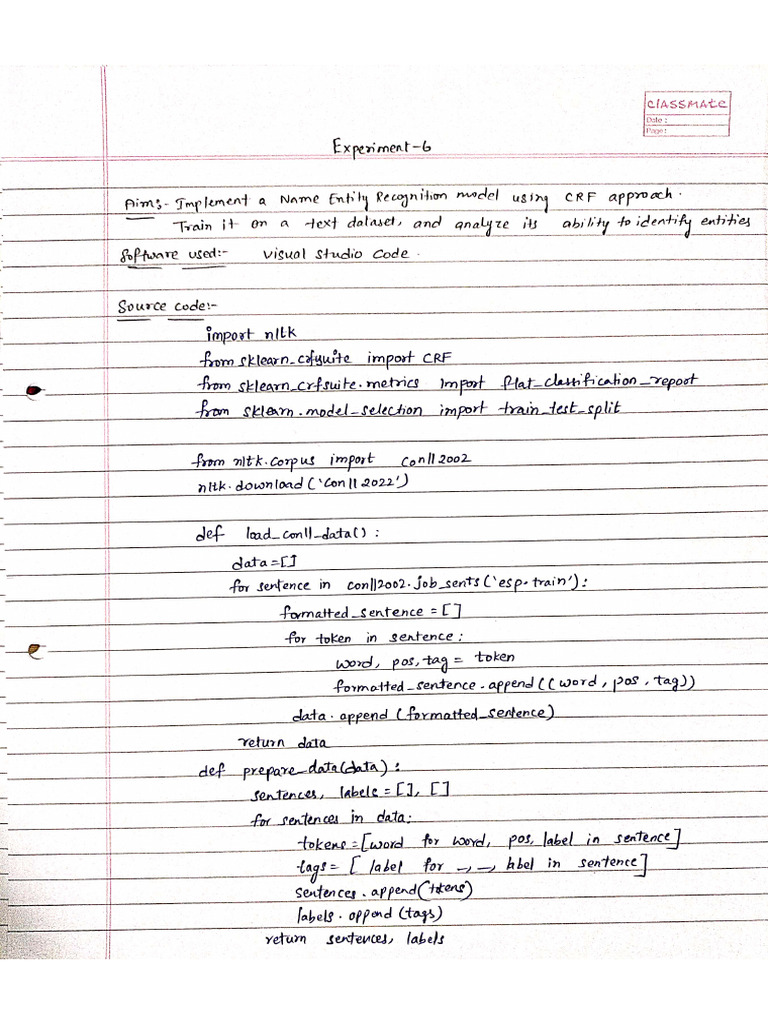 CLASSMATE
Date :
Page :
Experiment-6
Aim:- Implement a Name Entity Recognition model using CRF approach.
Train it on a text dataset, and analyze its ability to identify entities
Software used:- Visual Studio Code.
Source code:-
import nltk
from sklearn_crfyuite import CRF
from sklearn_crfsuite.metrics import flat_classification_report
from sklearn.model_selection import train_test_split
from nltk.corpus import conll2002
nltk.download('conll2022')
def load_conll_data():
data=[]
for sentence in conll2002.job_sents('esp.train'):
formatted_sentence = []
for token in sentence:
word, pos, tag = token
formatted_sentence.append((word, pos, tag))
data.append(formatted_sentence)
return data
def prepare_data(data):
sentences, labels = [], []
for sentences in data:
tokens=[word for word, pos, label in sentence]
tags= [label for _, _, label in sentence]
sentences.append(tokens)
labels.append(tags)
return sentences, labels